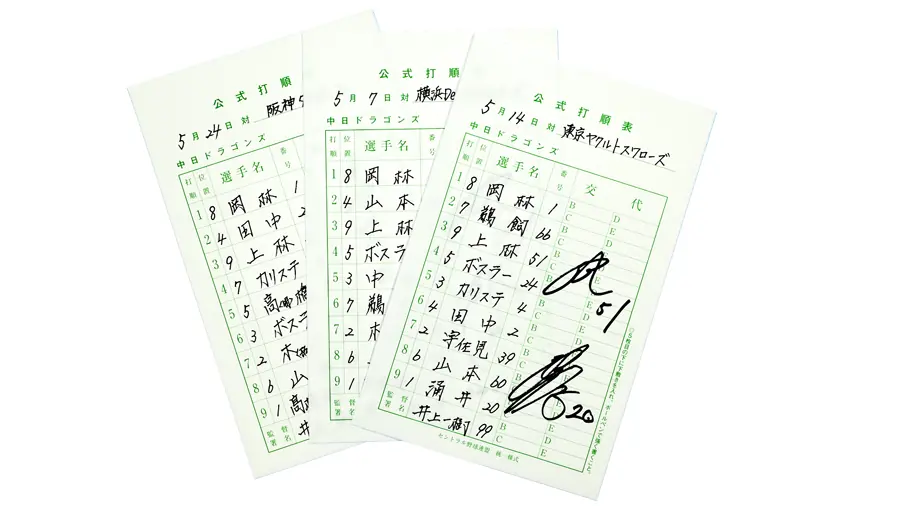 公式打順
5月24日対 阪神
中日ドラゴンズ
打順 位置 選手名 番号
1 8 岡林 1
2 4 田中 2
3 9 上林
4 7 カリステ
5 5 高橋
6 3 ボスラ
7 2 木
8 6 山
9 1 高
監督署名 井
公式打順
5月7日対 横浜De
中日ドラゴンズ
打順 位置 選手名 番号
1 8 岡林
2 4 山本
3 9 上林
4 5 ボスラ
5 3 中
6 7 鵜
7 2 木
8 6
9 1
監督署名
公式打順表
5月14日対 東京ヤクルトスワローズ
中日ドラゴンズ
打順 位置 選手名 番号 交代
1 8 岡林 1 B C D E
2 7 鵜飼 66 B C D E
3 9 上林 51 B C
4 5 ボスラー 24 B C
5 3 カリステ 4 B C D E
6 4 田中 2 B C D E
7 2 宇佐見 39 B C
8 6 山本 60 B C
9 1 涌井 20 B C
監督署名 井上一樹 99 B C D E
51
20
セントラル野球連盟 統一様式